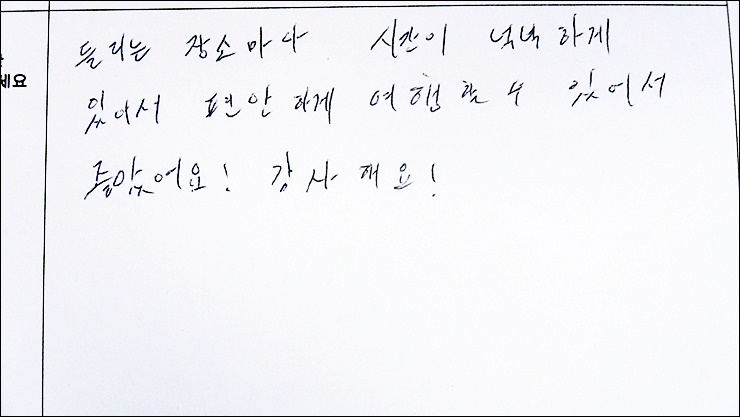 들리는 장소마다 시간이 넉넉하게
세요
있어서 편안하게 여행할 수 있어서
좋았어요! 감사해요!